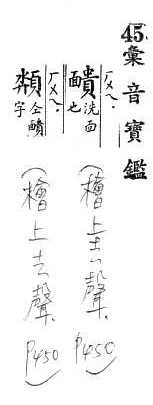 45.彙音寶鑑
ㄏㄨㄟˋ
靧 洗面也
ㄏㄨㄟˋ
頮 仝靧字
(檜上去聲. P450)
(檜上去聲. P450)